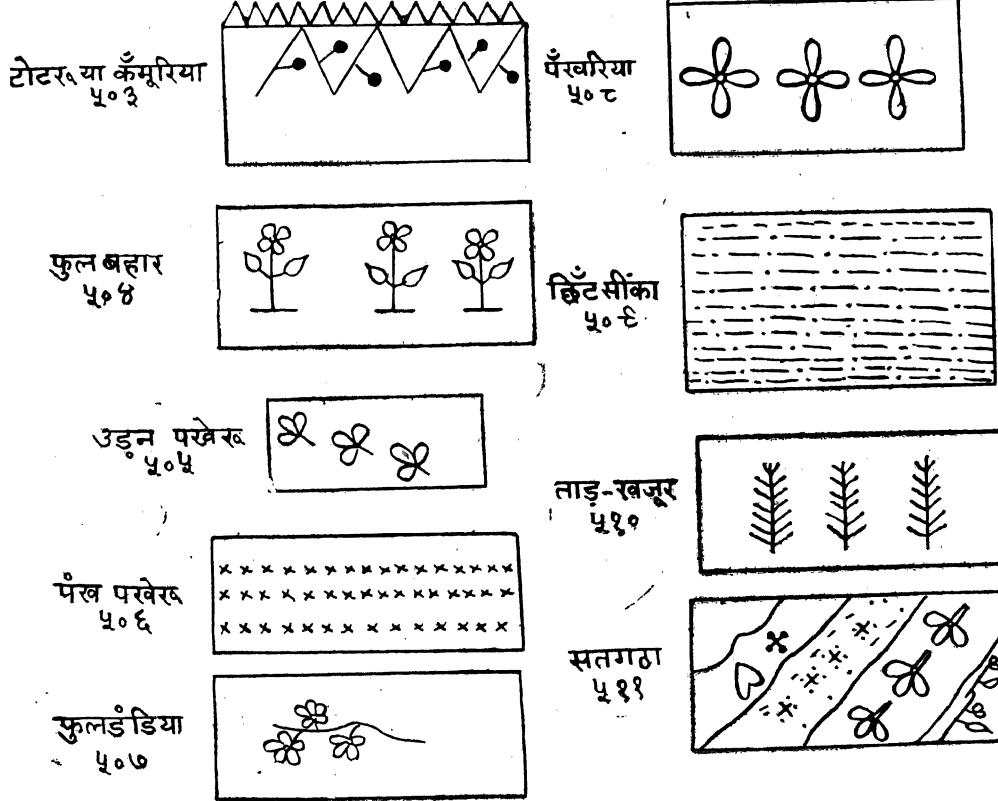 टोटरू या कँमूरिया
५०३
फुल बहार
५०४
उड़न पखेरू
५०५
पंख पखेरू
५०६
फुलडंडिया
५०७
पँखरिया
५०८
छिँट सींका
५०९
ताड़-खजूर
५१०
सतगठा
५११